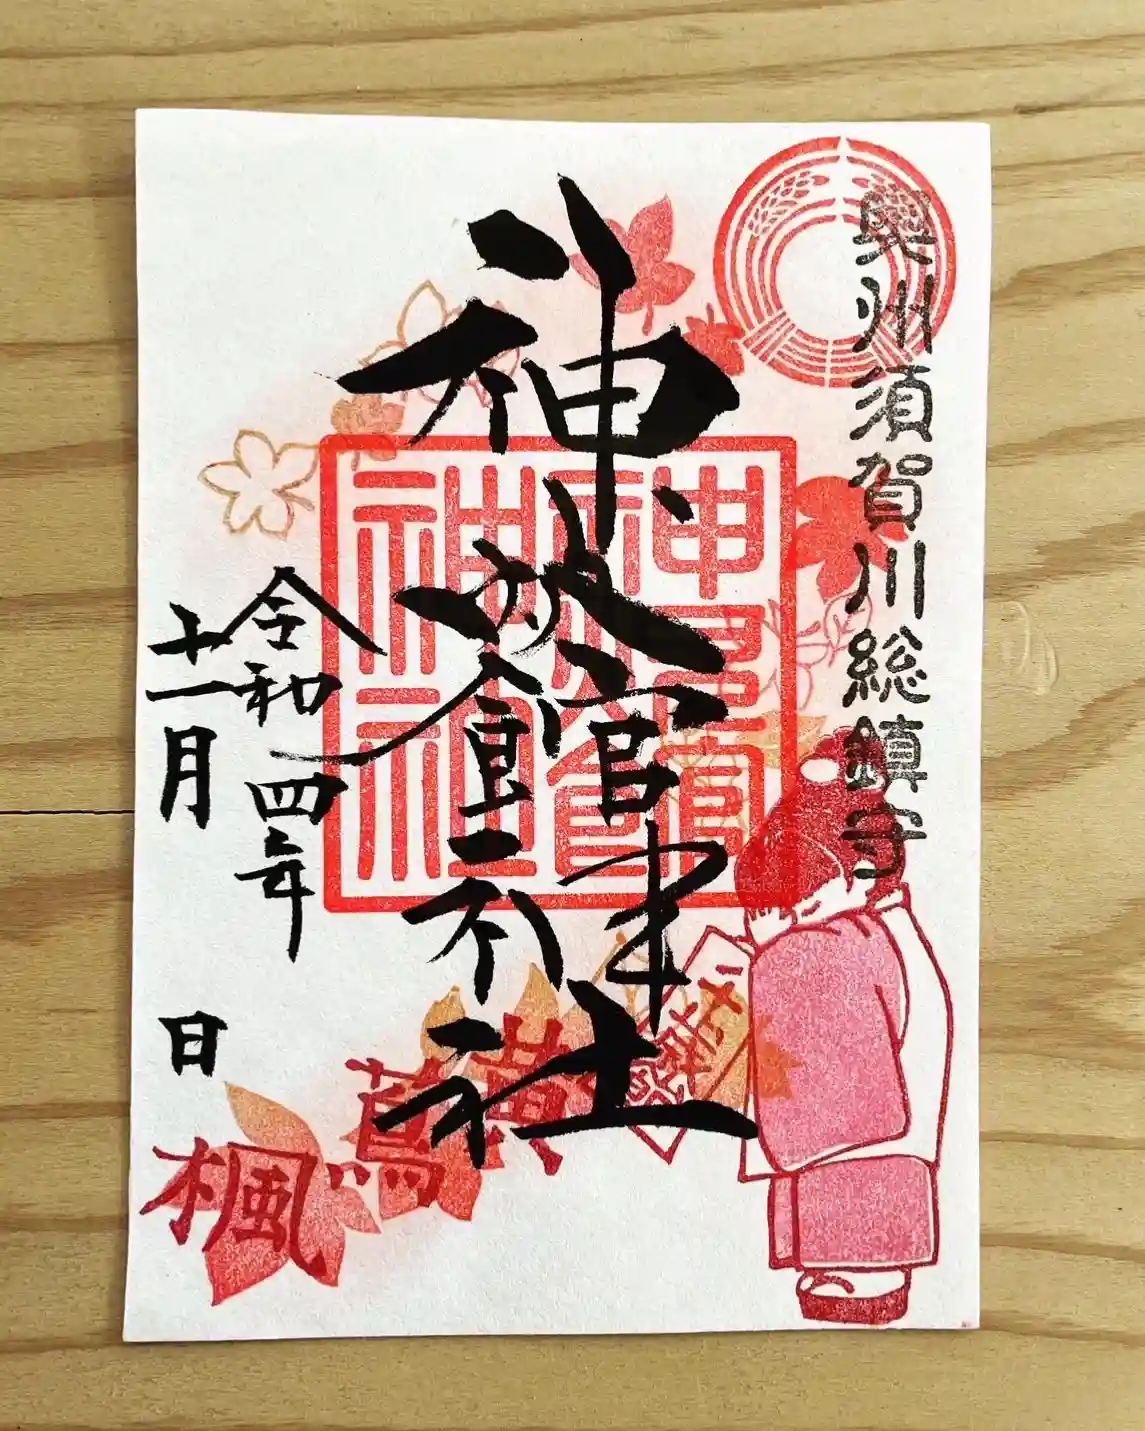 奥州須賀川総鎮守
神炊館神社
神炊館神社
令和四年
十一月 日
楓蔦黄